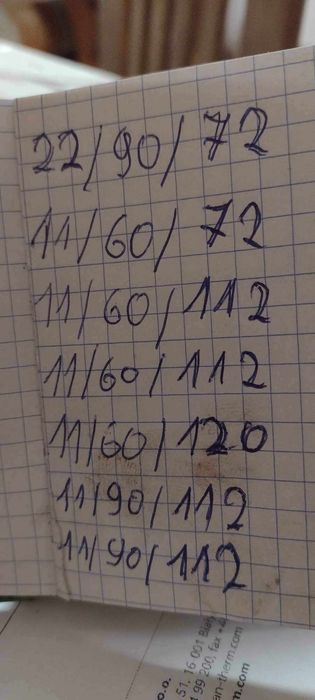 22/90/72
11/60/72
11/60/112
11/60/112
11/60/120
11/90/112
11/90/112
o.o.
51. 16 001
199 200, fax
an-therm.com
n.com